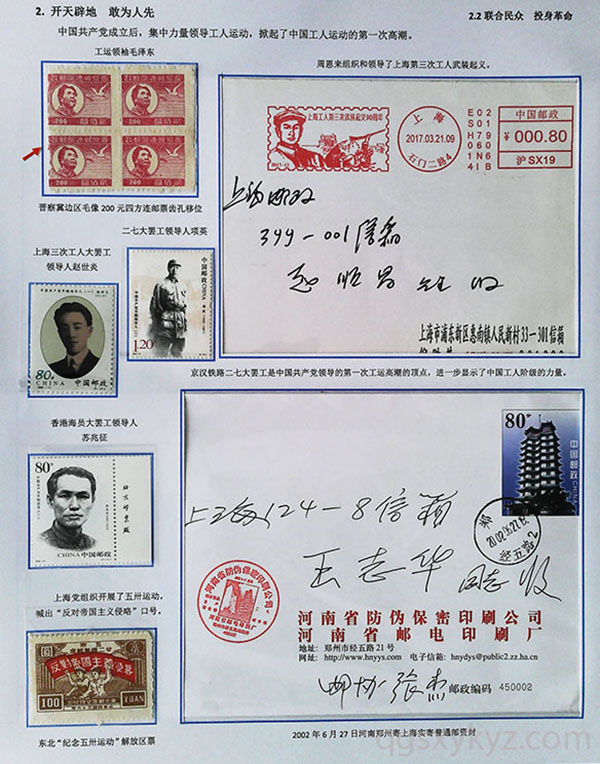 2. 开天辟地 敢为人先
2.2 联合民众 投身革命
中国共产党成立后，集中力量领导工人运动，掀起了中国工人运动的第一次高潮。
工运领袖毛泽东
200 200
200 200
晋察冀边区毛像 200 元四方连邮票齿孔移位
周恩来组织和领导了上海第三次工人武装起义。
上海工人第三次武装起义80周年
上海
2017.03.21.09
石门二路4
中国邮政
¥ 000.80
沪 SX19
上海邮政
399-001信箱
上海市浦东新区惠南镇人民新村33-301信箱
上海三次工人大罢工
领导人赵世炎
80分
CHINA 中国邮政
二七大罢工领导人项英
中国邮政 CHINA
1.20
京汉铁路二七大罢工是中国共产党领导的第一次工运高潮的顶点，进一步显示了中国工人阶级的力量。
香港海员大罢工领导人
苏兆征
80分
北京邮票厂
CHINA 中国邮政
80分
中国邮政 CHINA
上海124-8信箱
王志华 同志收
河南省防伪保密印刷公司
河南省邮电印刷厂
地址: 郑州市经五路21号
网址: http://www.hnyys.com 电子信箱: hnydys@public2.zz.ha.cn
邮协 张杰 邮政编码 450002
上海党组织开展了五卅运动，
喊出“反对帝国主义侵略”口号。
100 YUAN
东北“纪念五卅运动”解放区票
2002 年 6 月 27 日河南郑州寄上海实寄普通邮资封
qgsxykyz.com